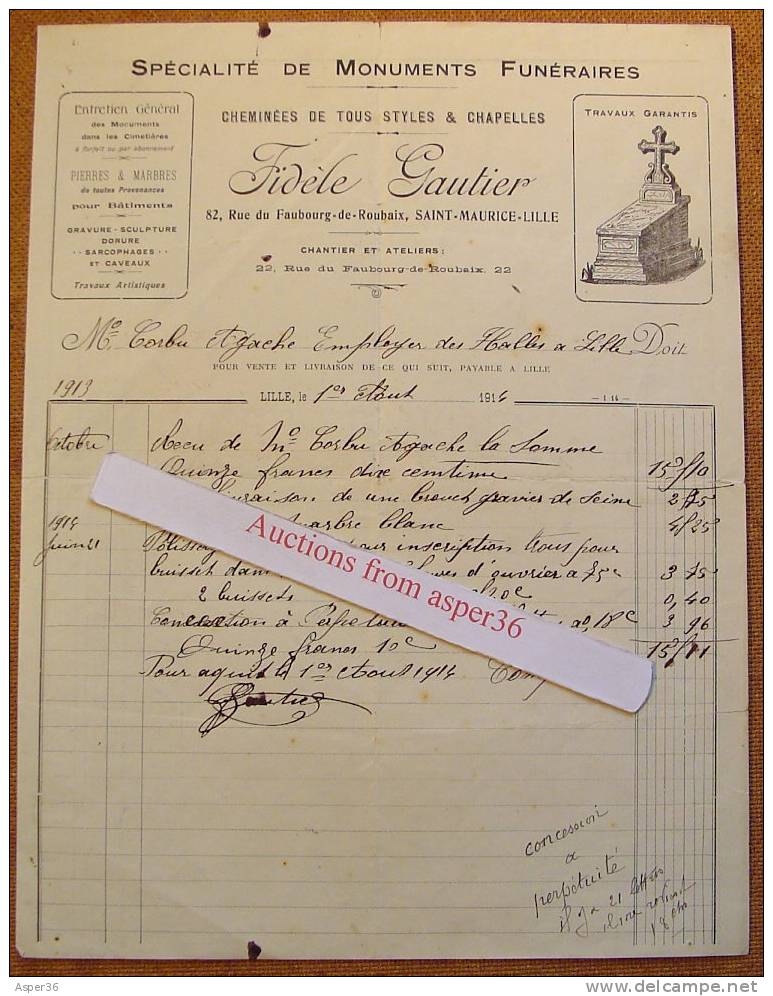 SPÉCIALITÉ DE MONUMENTS FUNÉRAIRES
Entretien Général
des Monuments
dans les Cimetières
à forfait ou par abonnement
PIERRES & MARBRES
de toutes Provenances
pour Bâtiments
GRAVURE - SCULPTURE
DORURE
SARCOPHAGES
ET CAVEAUX
Travaux Artistiques
CHEMINÉES DE TOUS STYLES & CHAPELLES
Fidèle Gautier
82, Rue du Faubourg-de-Roubaix, SAINT-MAURICE-LILLE
CHANTIER ET ATELIERS:
22, Rue du Faubourg-de-Roubaix, 22
TRAVAUX GARANTIS
Mr Corbu Agache Employer des Halles a Lille Doit
POUR VENTE ET LIVRAISON DE CE QUI SUIT, PAYABLE A LILLE
1913
LILLE, le 1er Aout 1914
Octobre Recu de Mr Corbu Agache la Somme
Quinze francs dix centime 15f10
livraison de une brouet gravier de Seine 2f75
1914 marbre blanc 4f25
Juin 21 pour inscription trous pour
buisset dans d'ouvrier a 75c 3 75
2 buissets 0,40
Concession à 18c 3 96
Quinze francs 10c 15f11
Pour aquit le 1er Aout 1914
Gautier
Auctions from asper36
concession
a
perpétuité
il y a 21 lettres
18 cts
Asper36
www.delcampe.net